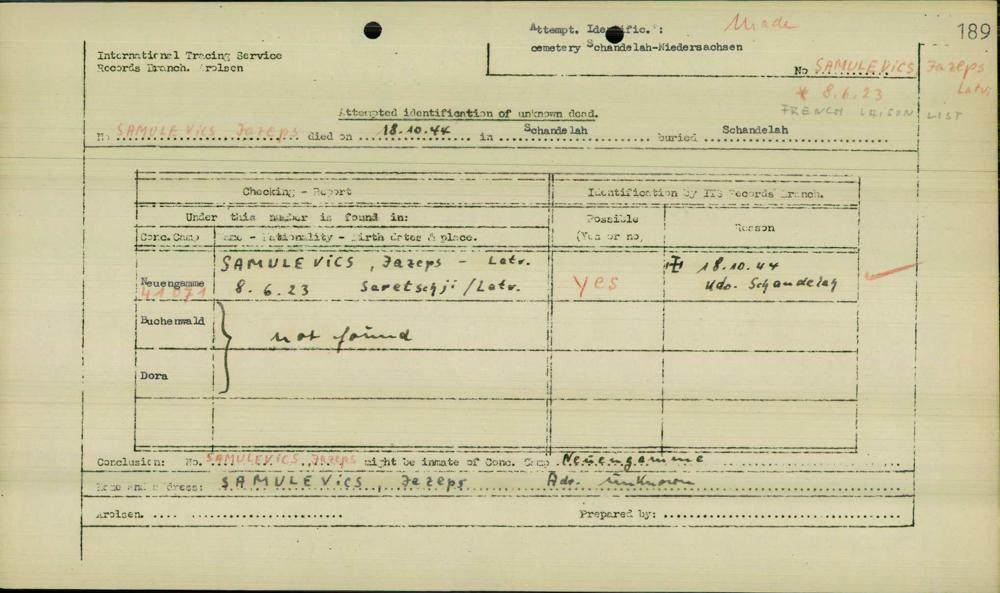 Attempt. Identific. : Made
189
cemetery Schandelah-Niedersachsen
International Tracing Service
Records Branch. Arolsen
No SAMULEVICS Jazeps
* 8.6.23 Latv.
FRENCH LAISON LIST
Attempted identification of unknown dead.
No SAMULEVICS Jazeps died on 18.10.44 in Schandelah buried Schandelah
Checking - Report
Identification by ITS Records Branch.
Under this number is found in:
Possible
(Yes or no)
Reason
Conc.Camp
Name - Nationality - Birth dates & place.
Neuengamme
41071
SAMULEVICS, Jazeps - Latv.
8.6.23 Saretschji/Latv.
yes
18.10.44
Kdo. Schandelah
Buchenwald
not found
Dora
Conclusion: No. SAMULEVICS, Jazeps might be inmate of Conc. Camp Neuengamme
Name and address: SAMULEVICS, Jazeps Adr. unknown
Arolsen. .... ........................
Prepared by: ....................................